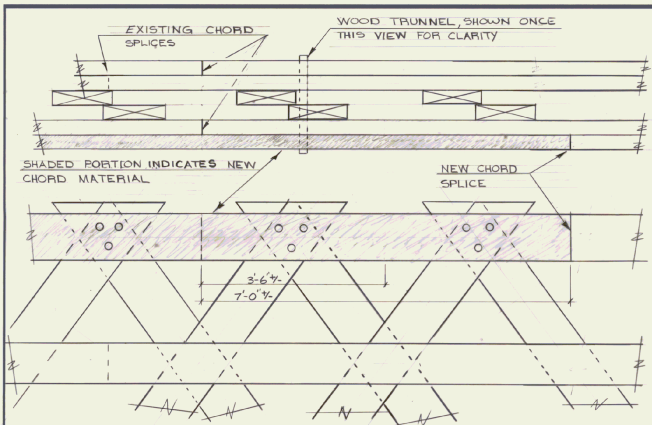 EXISTING CHORD
SPLICES
WOOD TRUNNEL, SHOWN ONCE
THIS VIEW FOR CLARITY
SHADED PORTION INDICATES NEW
CHORD MATERIAL
NEW CHORD
SPLICE
3'-6"+/-
7'-0"+/-